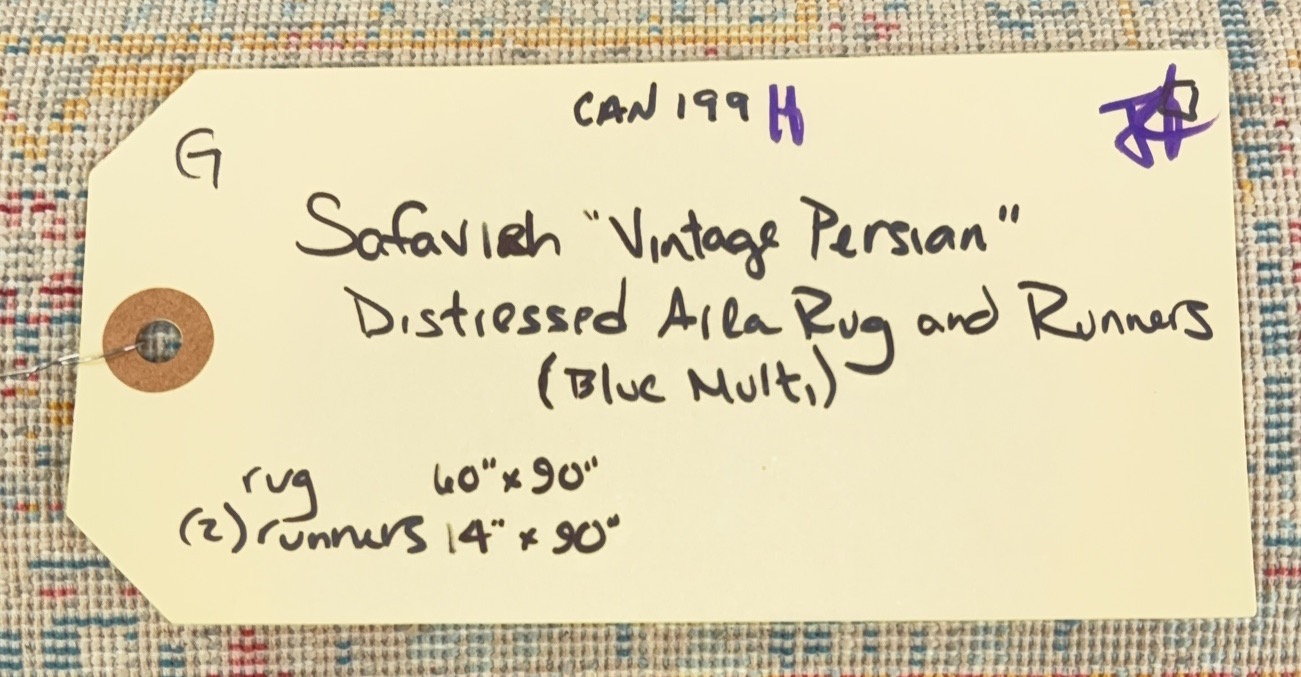 CAN 199 H
G
Safavieh "Vintage Persian"
Distressed Area Rug and Runners
(Blue Multi)
rug 60" x 90"
(2) runners 14" x 90"